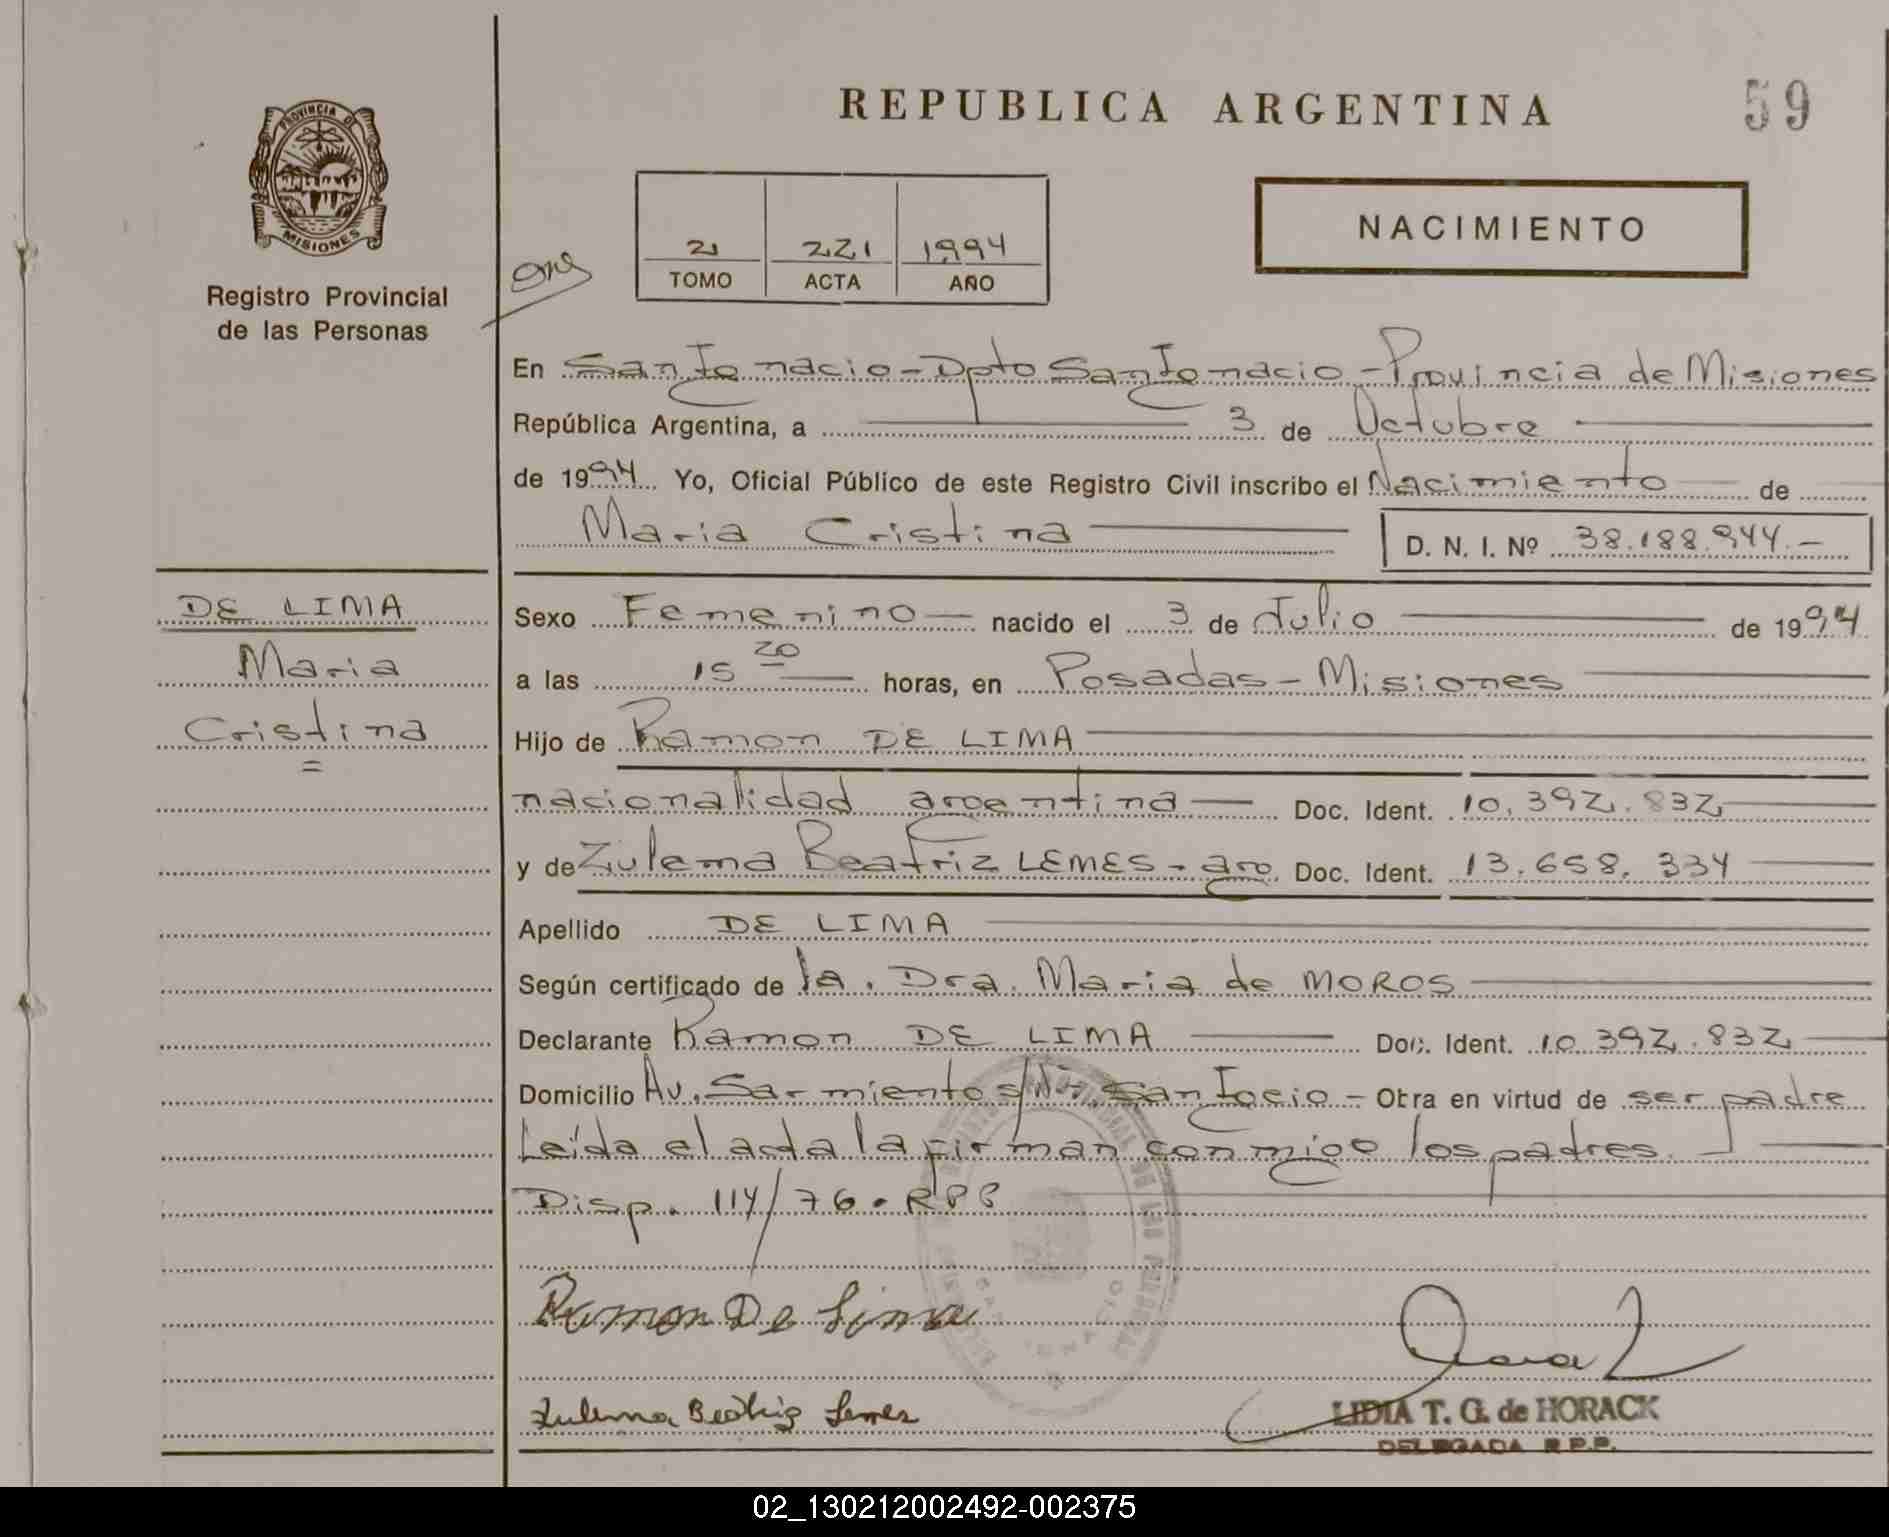 REPUBLICA ARGENTINA
59
PROVINCIA DE
MISIONES
Registro Provincial
de las Personas
2 221 1994
TOMO ACTA AÑO
NACIMIENTO
En San Ignacio - Dpto San Ignacio - Provincia de Misiones
República Argentina, a 3 de Octubre
de 1994 Yo, Oficial Público de este Registro Civil inscribo el Nacimiento de
Maria Cristina D. N. I. Nº 38.188.944.-
DE LIMA
Maria
Cristina
Sexo Femenino nacido el 3 de Julio de 1994
a las 15 20 horas, en Posadas - Misiones
Hijo de Ramon DE LIMA
nacionalidad argentina Doc. Ident. 10.392.832
y de Zulema Beatriz LEMES - arg. Doc. Ident. 13.658.334
Apellido DE LIMA
Según certificado de la. Dra. Maria de MOROS
Declarante Ramon DE LIMA Doc. Ident. 10.392.832
Domicilio Av. Sarmiento s/Nº San Igcio - Obra en virtud de ser padre
Leída el acta la firman conmigo los padres.
Disp. 114/76. RPP
Ramon De Lima
Zulema Beatriz Lemes
LIDIA T. G. de HORACK
DELEGADA R.P.P.
SAN IGNACIO
02_130212002492-002375